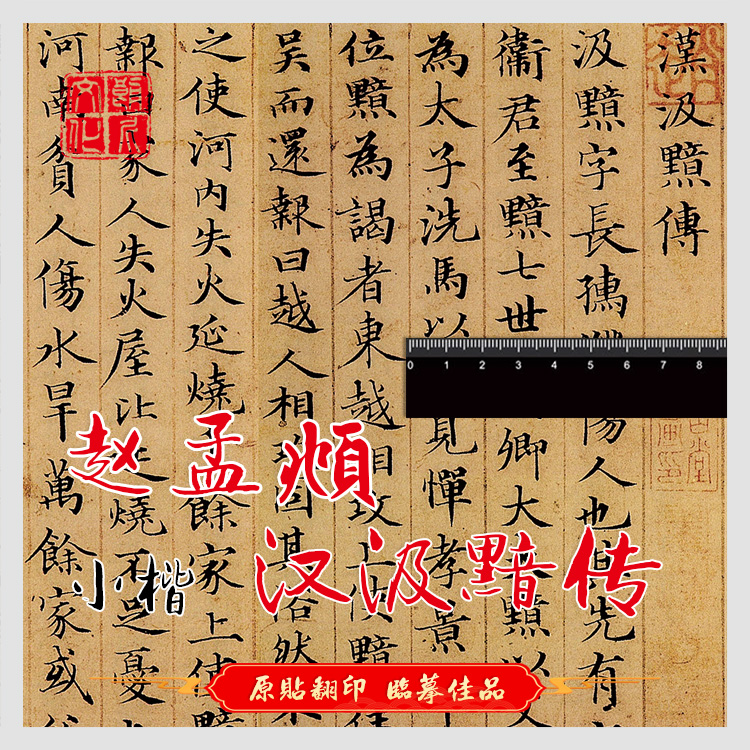 漢汲黯傳
汲黯字長孺 人也其先有
衛君至黯七世 卿大夫黯以
為太子洗馬以 見憚孝景
位黯為謁者東越相攻上使黯
吳而還報曰越人相攻固其俗然不
之使河內失火延燒 餘家上使黯
報曰家人失火屋比延燒不足憂
河南貧人傷水旱萬餘家或
0 1 2 3 4 5 6 7 8
赵孟頫
小楷 汉汲黯传
原貼翻印 臨摹佳品